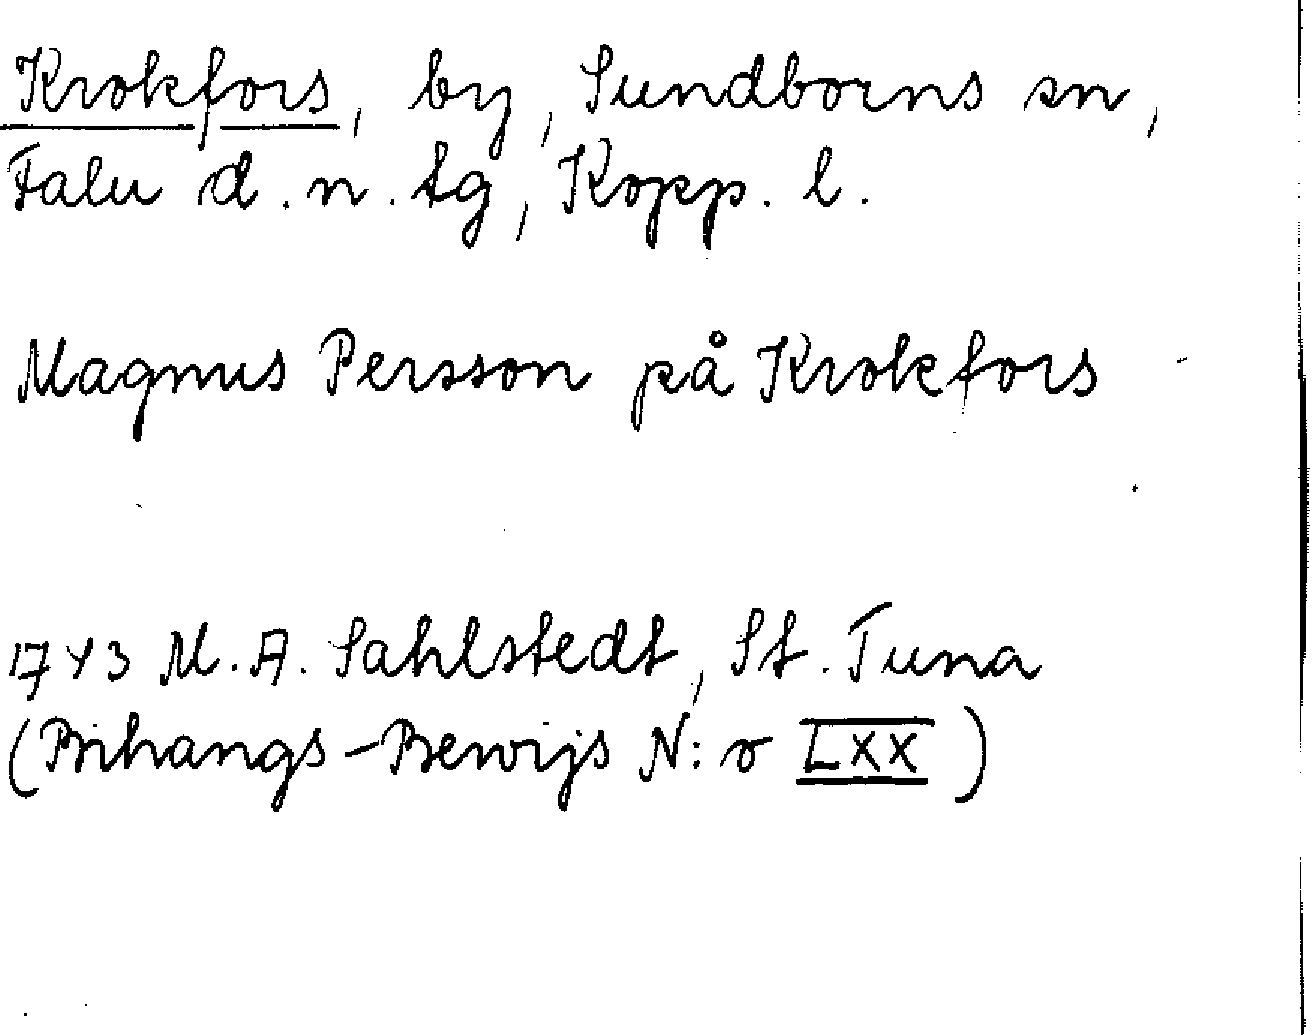 Krokfors, by, Sundborns sn,
Falu d. n. tg, Kopp. l.
Magnus Persson på Krokfors
1743 M. A. Sahlstedt, St. Tuna
(Bihangs-Bewijs N:o LXX)